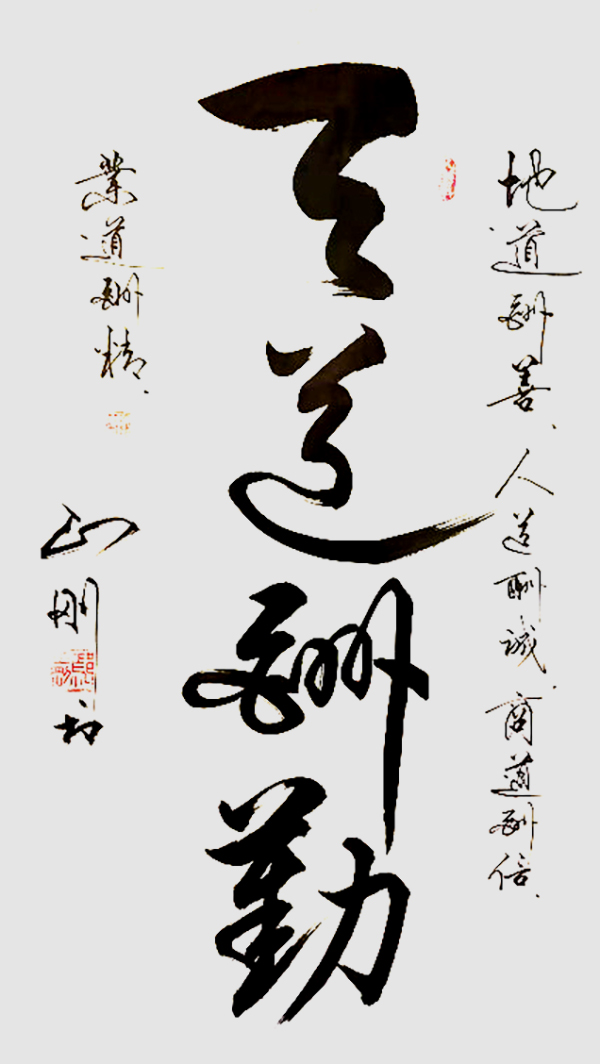 天道酬勤
地道酬善、人道酬诚、商道酬信、
業道酬精、
山刚书